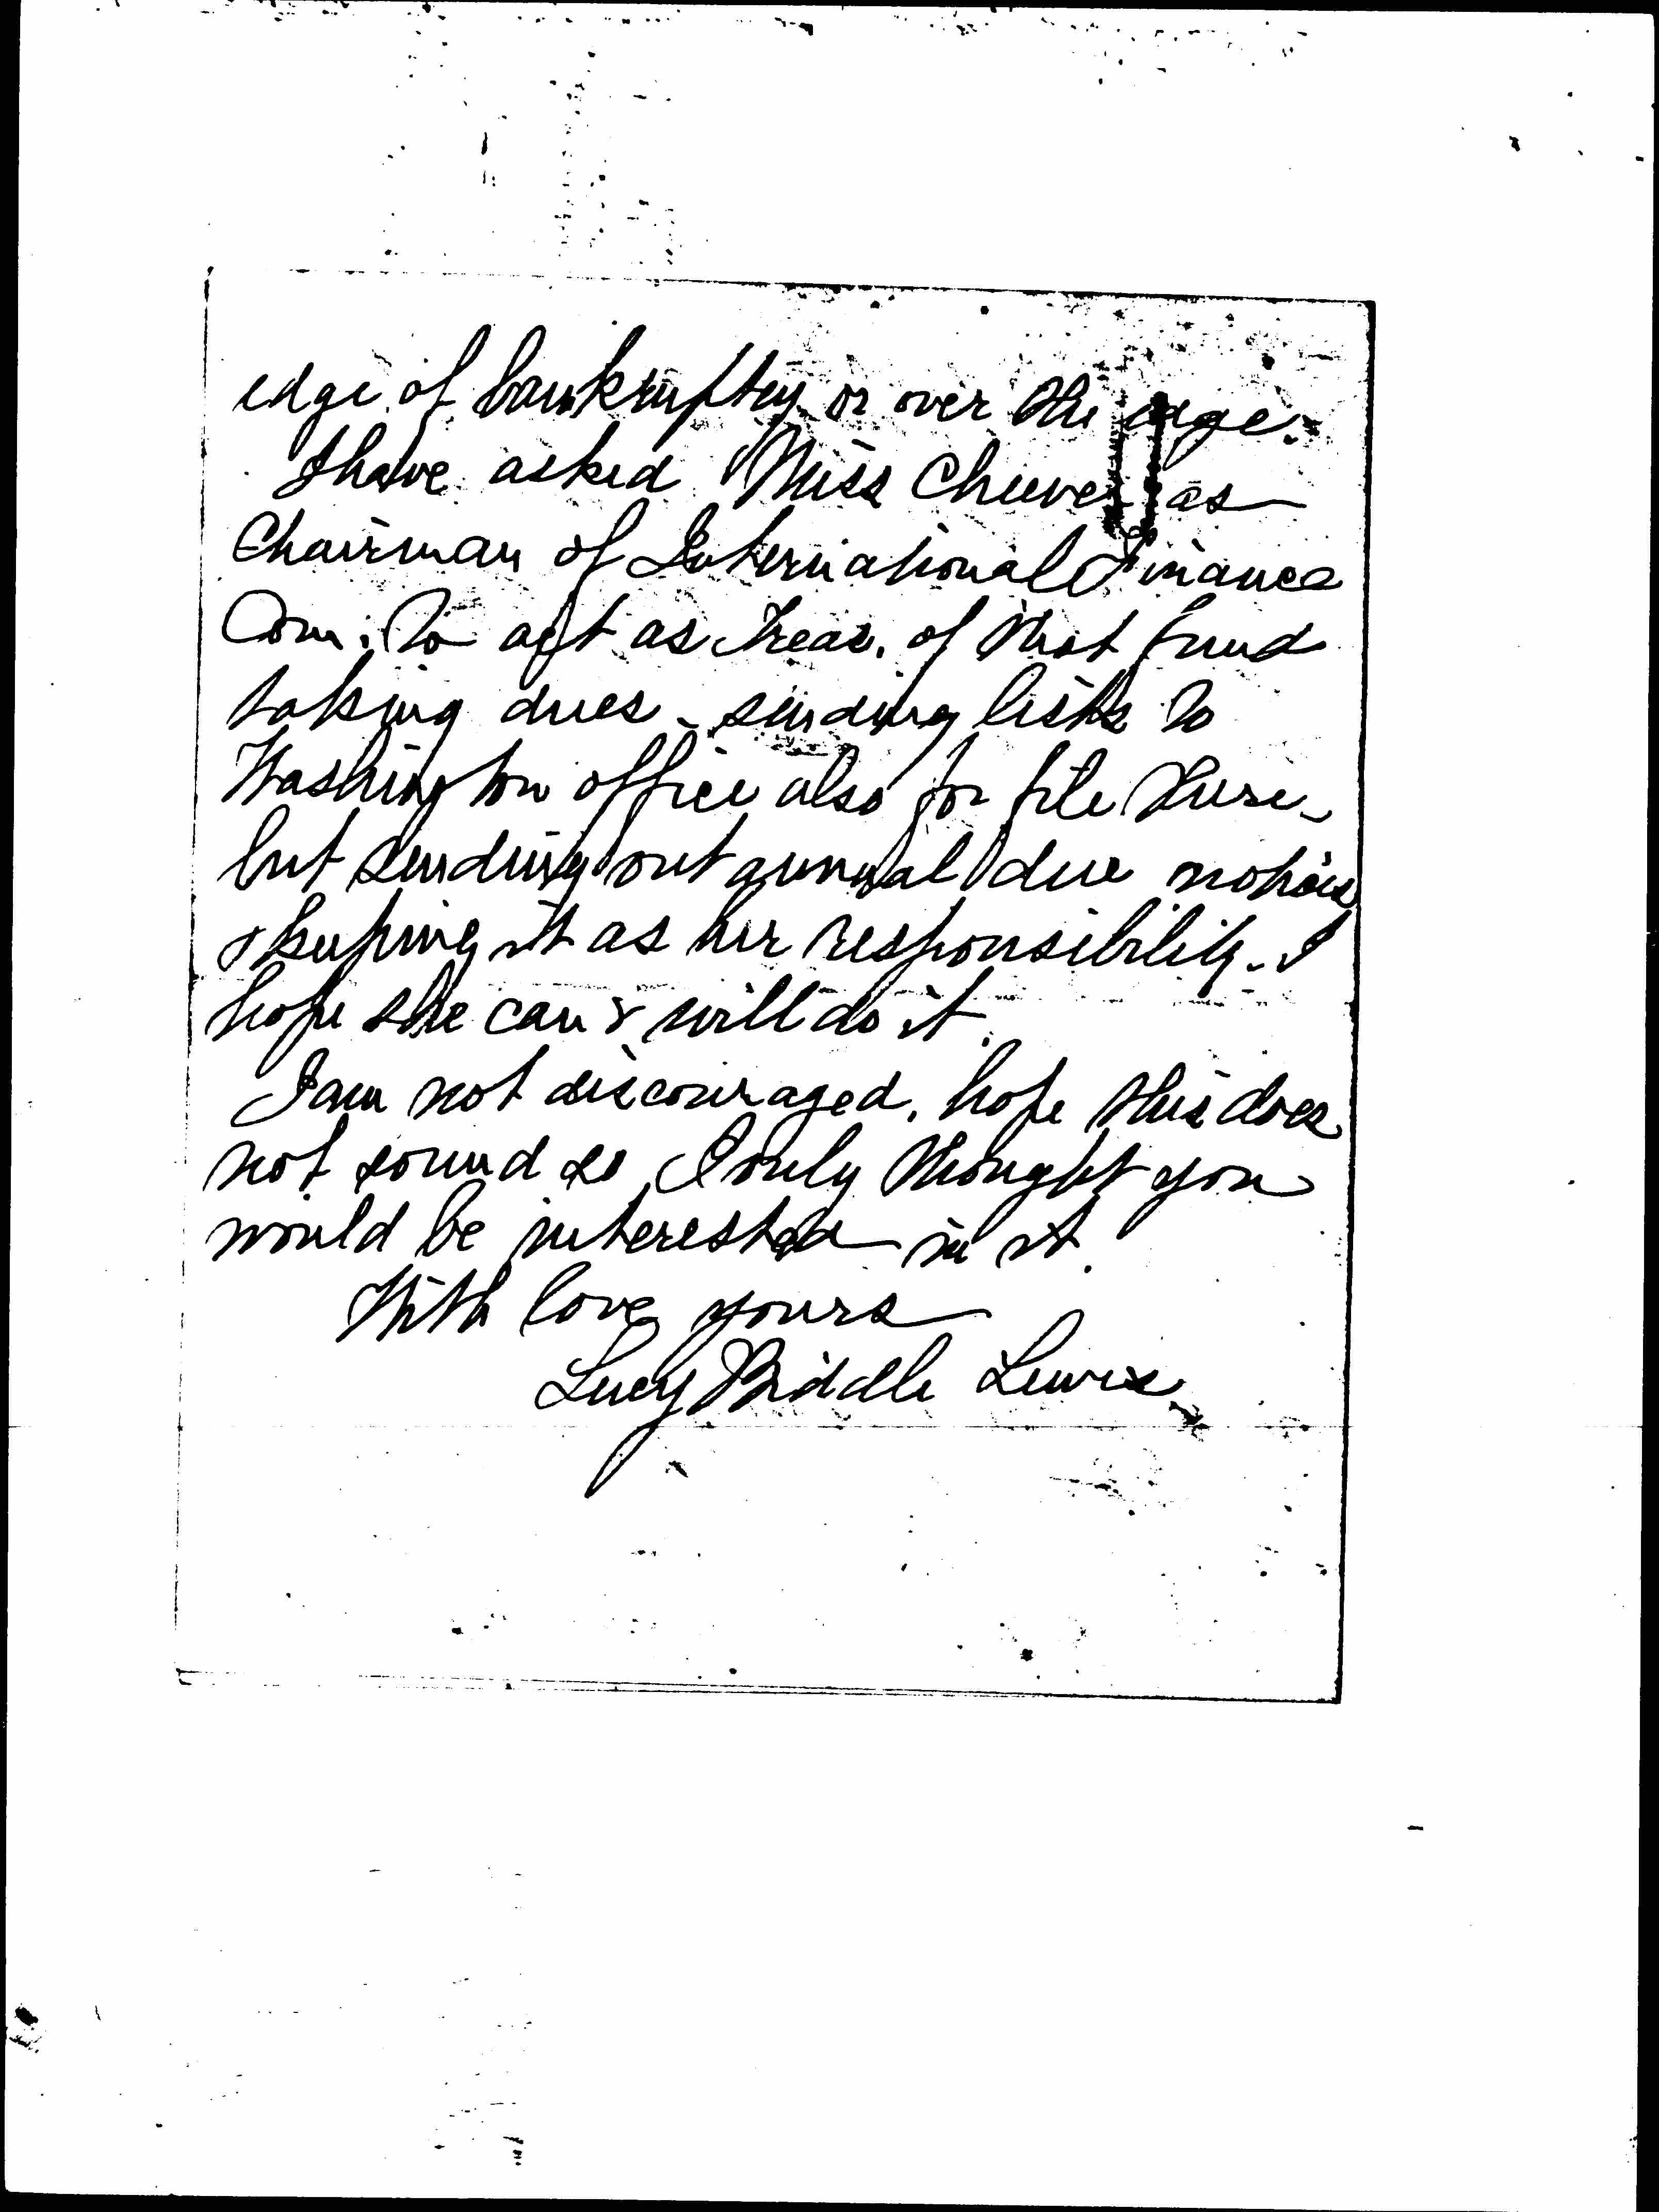 edge of bankruptcy or over the edge.
I have asked Miss Cheever as
Chairman of International Finance
Com. to act as Treas. of that fund
taking dues - sending lists to
Washington office also for file there -
but sending out annual due notices
& keeping it as her responsibility - I
hope she can & will do it.
I am not discouraged, hope this does
not sound so, I only thought you
would be interested in it.
With love yours
Lucy Biddle Lewis